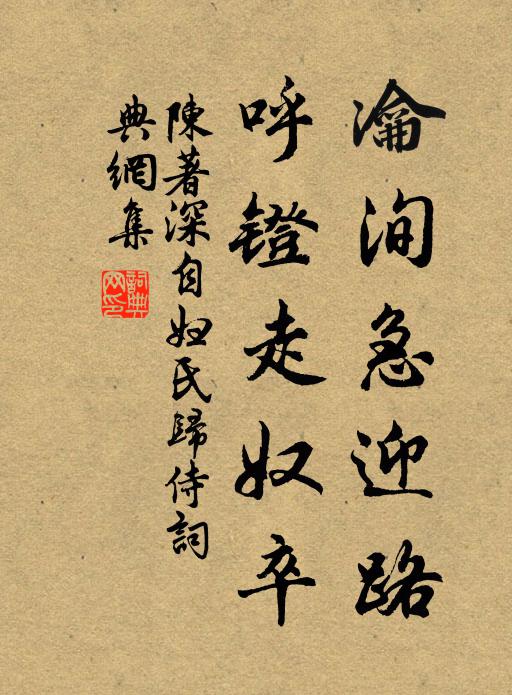 瀹洵急迎路
呼鐙走奴卒
陳著深自奴氏歸侍詞
典網集
詞典网印